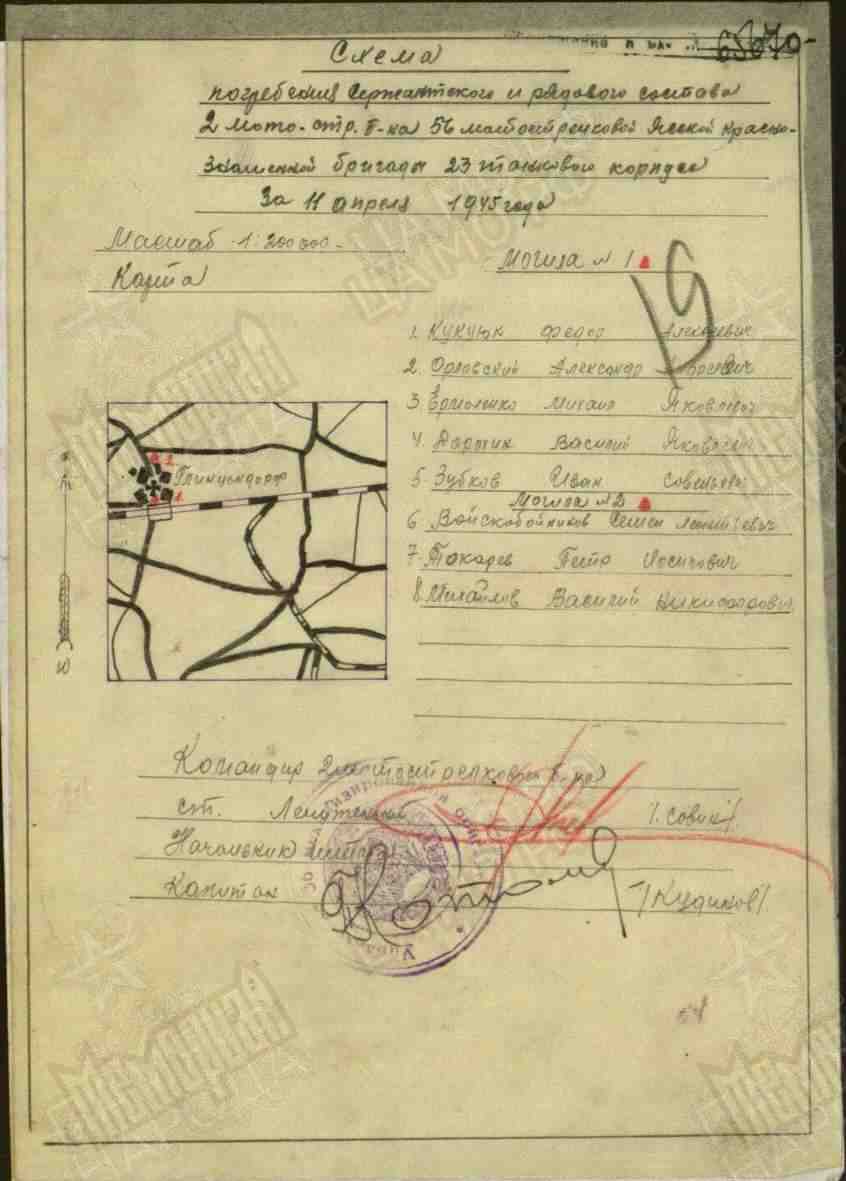 65670
Схема
погребения Сержантского и рядового состава
2 мото-стр. б-на 56 мотострелковой Ясской Красно-
знаменной бригады 23 танкового корпуса
За 11 апреля 1945 года
Масштаб 1:200000-
Карта
Могила № 1
19
1. Кукуюк Федор Алексеевич
2. Орловский Александр
3. Ермоленко Михаил Яковлевич
4. Василий Яковлевич
5. Зубков Иван Совельевич
Могила № 2
6. Войскобойников Семен Леонтьевич
7. Токарев Петр Иосипович
8. Михайлов Василий Никифорович
2.
Глинцендорф
1.
с
ю
Командир 2 мотострелкового б-на
ст. Лейтенант /Совин/
Начальник штаба
Капитан /Кудинов/